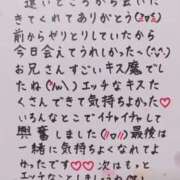 遠いところから会いに
きてくれてありがとう
前からゼリトリしていたから
今日会えてうれしかったへ
お兄さんすごいキス魔でし
たね エッチなキスた
くさんできて気持ちよかった
いろんなとこでイチャイチャして
興奮しました♡最後は
一緒に気持ちよくなれてよ
かったです♡♡次はもっと
エッチなことしましょうね